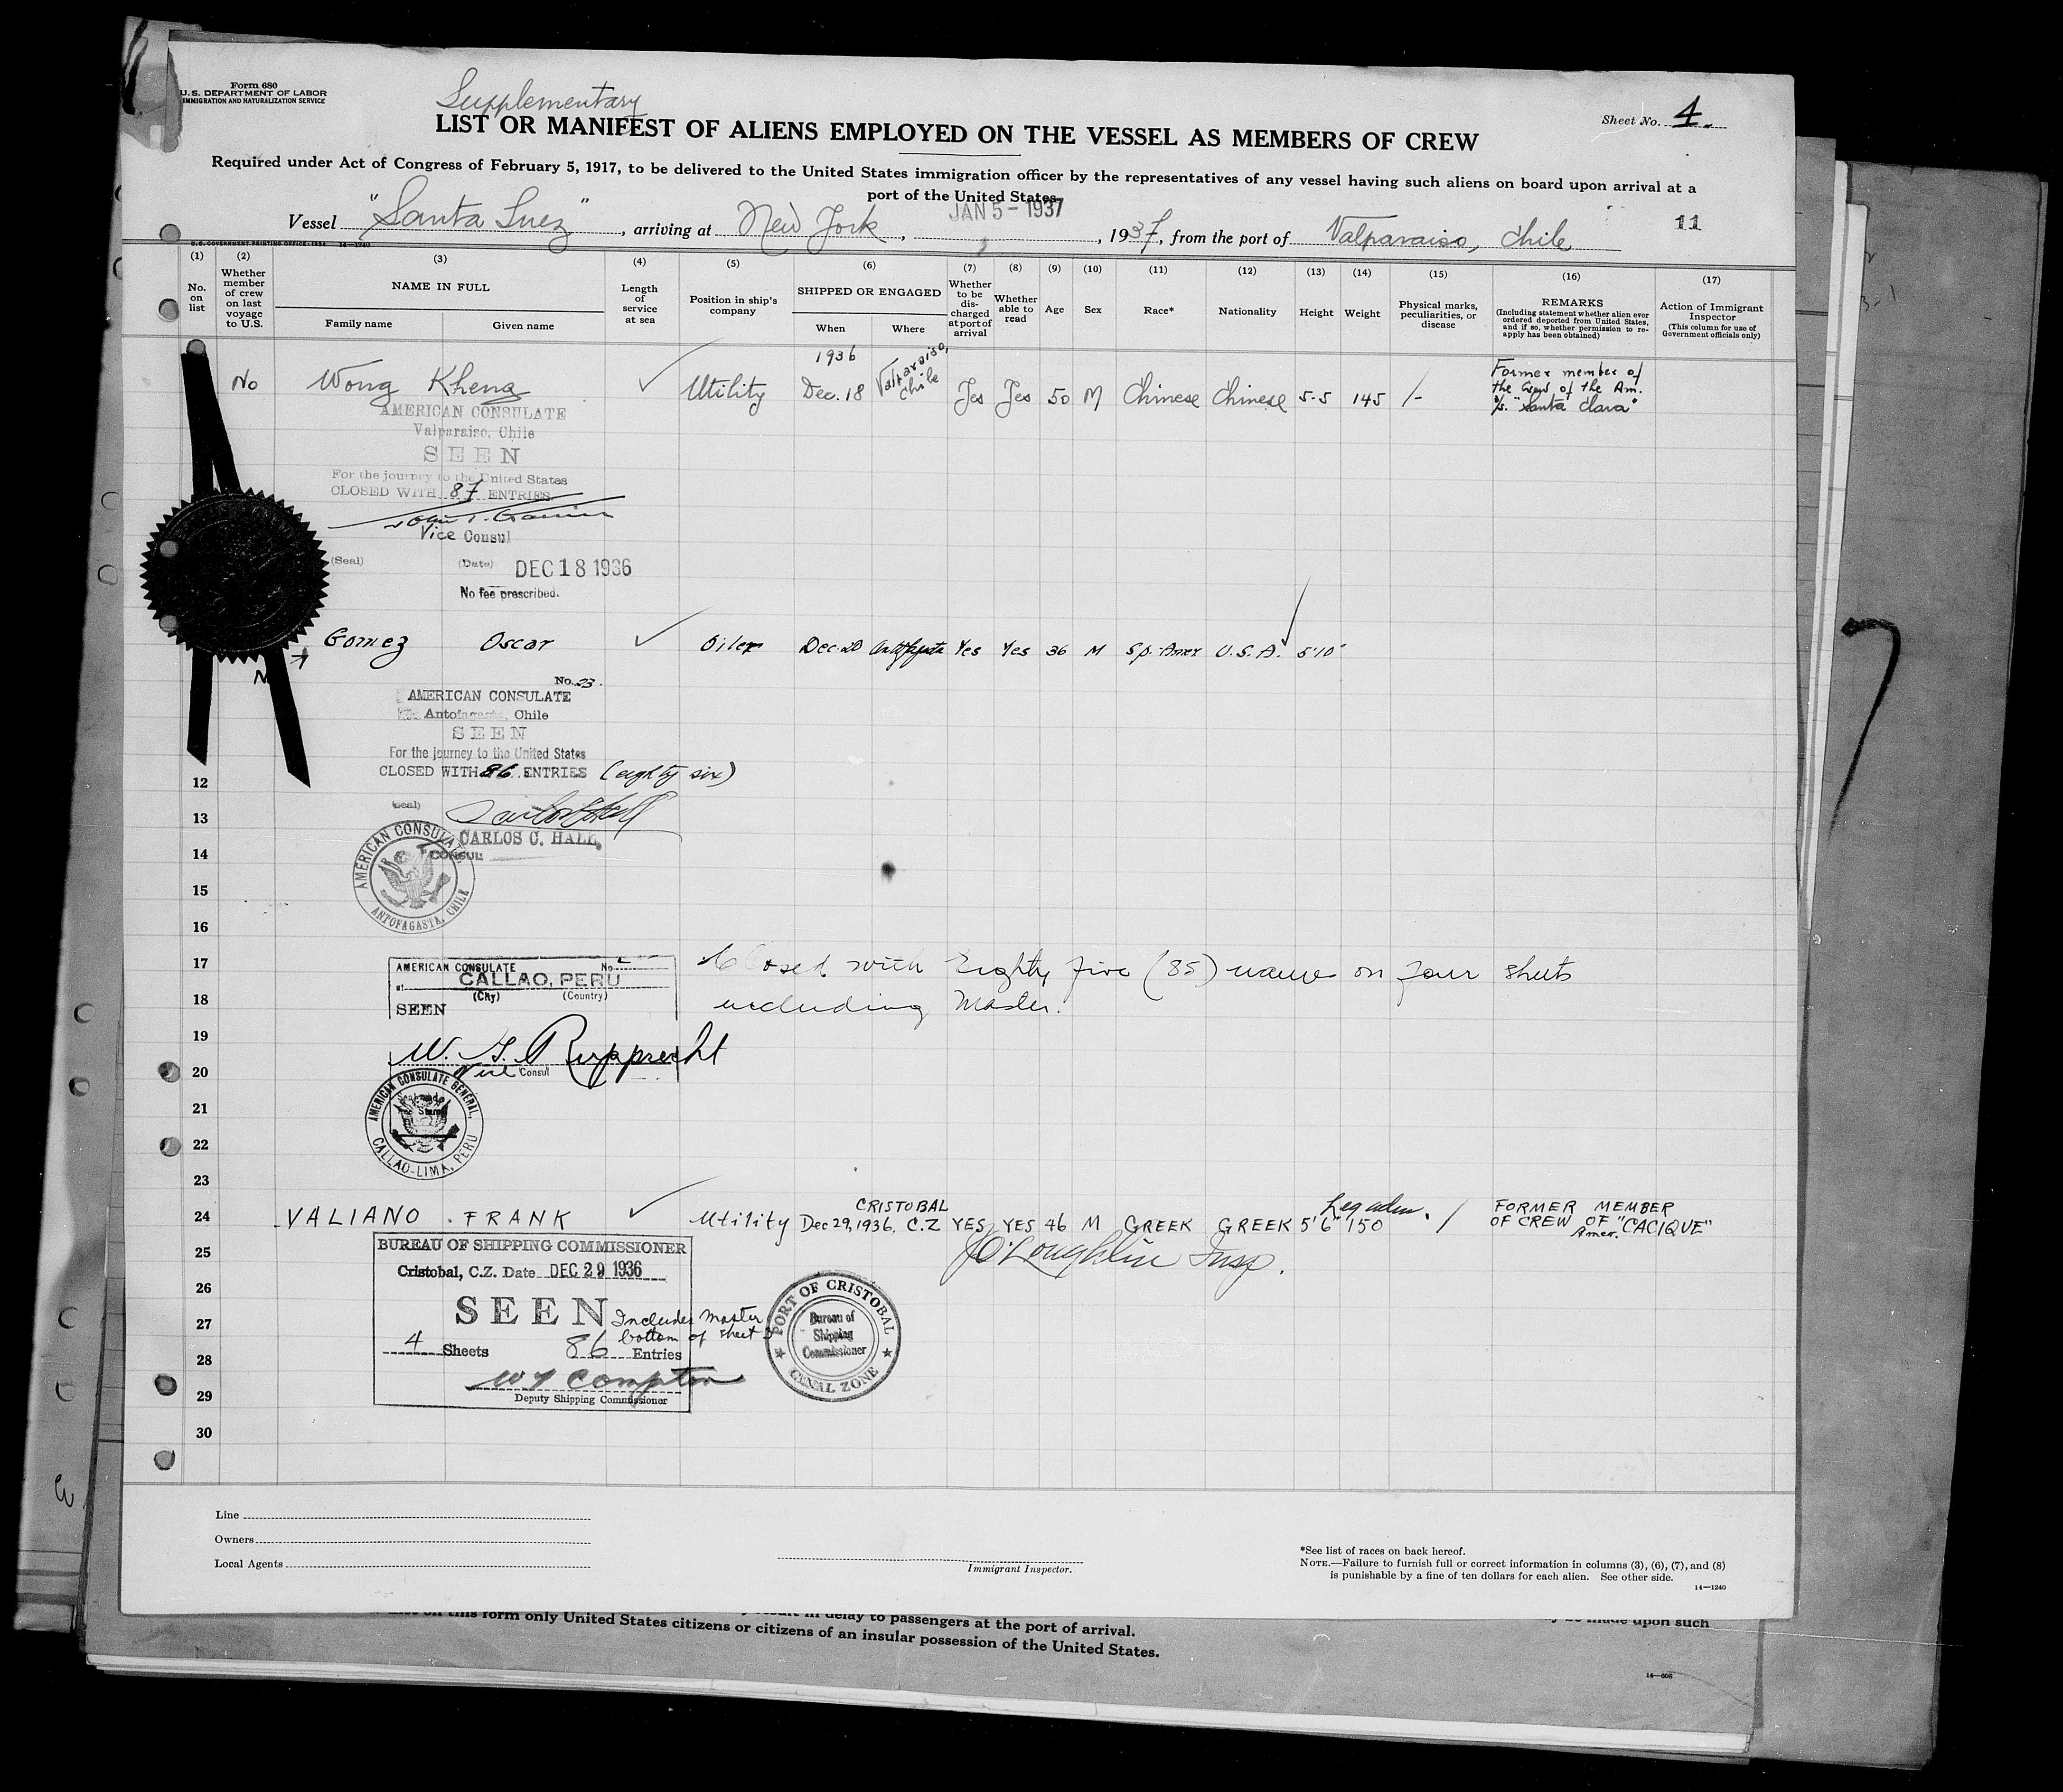 Form 680
U.S. DEPARTMENT OF LABOR
IMMIGRATION AND NATURALIZATION SERVICE
Supplementary
Sheet No. 4.
LIST OR MANIFEST OF ALIENS EMPLOYED ON THE VESSEL AS MEMBERS OF CREW
Required under Act of Congress of February 5, 1917, to be delivered to the United States immigration officer by the representatives of any vessel having such aliens on board upon arrival at a
port of the United States
JAN 5 - 1937
11
Vessel "Santa Inez", arriving at New York, , 1937, from the port of Valparaiso, Chile
U.S. GOVERNMENT PRINTING OFFICE 14-1240
(1) (2) (3) (4) (5) (6) (7) (8) (9) (10) (11) (12) (13) (14) (15) (16) (17)
No. on list
Whether member of crew on last voyage to U.S.
NAME IN FULL
Family name
Given name
Length of service at sea
Position in ship's company
SHIPPED OR ENGAGED
When
Where
Whether to be discharged at port of arrival
Whether able to read
Age
Sex
Race*
Nationality
Height
Weight
Physical marks, peculiarities, or disease
REMARKS
(Including statement whether alien ever ordered deported from United States, and if so, whether permission to reapply has been obtained)
Action of Immigrant Inspector
(This column for use of Government officials only)
No Wong Kheng Utility 1936 Dec. 18 Valparaiso, Chile Yes Yes 50 M Chinese Chinese 5-5 145 /- Former member of the Crew of the Am. s/s. "Santa Clara"
AMERICAN CONSULATE
Valparaiso, Chile
SEEN
For the journey to the United States
CLOSED WITH 87 ENTRIES
Vice Consul
(Seal)
(Date) DEC 18 1936
No fee prescribed.
Gomez Oscar Oiler Dec. 20 Antofagasta Yes Yes 36 M Sp. Amer U.S.A. 5'10"
No. 23.
AMERICAN CONSULATE
Antofagasta, Chile
SEEN
For the journey to the United States
CLOSED WITH 86 ENTRIES (eighty six)
12
(Seal)
13
CARLOS C. HALL,
CONSUL
14
AMERICAN CONSULATE
ANTOFAGASTA, CHILE
15
16
17
AMERICAN CONSULATE No.
at CALLAO, PERU
(City) (Country)
SEEN
Closed with Eighty five (85) names on four sheets
18
including Master.
19
W. G. Rupprecht
Vice Consul
20
AMERICAN CONSULATE GENERAL,
CALLAO-LIMA, PERU
21
22
23
24 VALIANO FRANK Utility Dec 29, 1936, CRISTOBAL C.Z YES YES 46 M GREEK GREEK 5'6" 150 / FORMER MEMBER OF CREW OF Amer. "CACIQUE"
Leg adm.
25
J O'Loughlin Insp.
BUREAU OF SHIPPING COMMISSIONER
Cristobal, C.Z. Date DEC 29 1936
26
SEEN
27
Includes Master
bottom of sheet 3
4 Sheets 86 Entries
28
W Y Compton
29
Deputy Shipping Commissioner
PORT OF CRISTOBAL
Bureau of
Shipping
Commissioner
CANAL ZONE
30
Line
Owners
Local Agents
Immigrant Inspector.
*See list of races on back hereof.
NOTE.—Failure to furnish full or correct information in columns (3), (6), (7), and (8)
is punishable by a fine of ten dollars for each alien. See other side.
14—1240
in delay to passengers at the port of arrival.
be made upon such
this form only United States citizens or citizens of an insular possession of the United States.